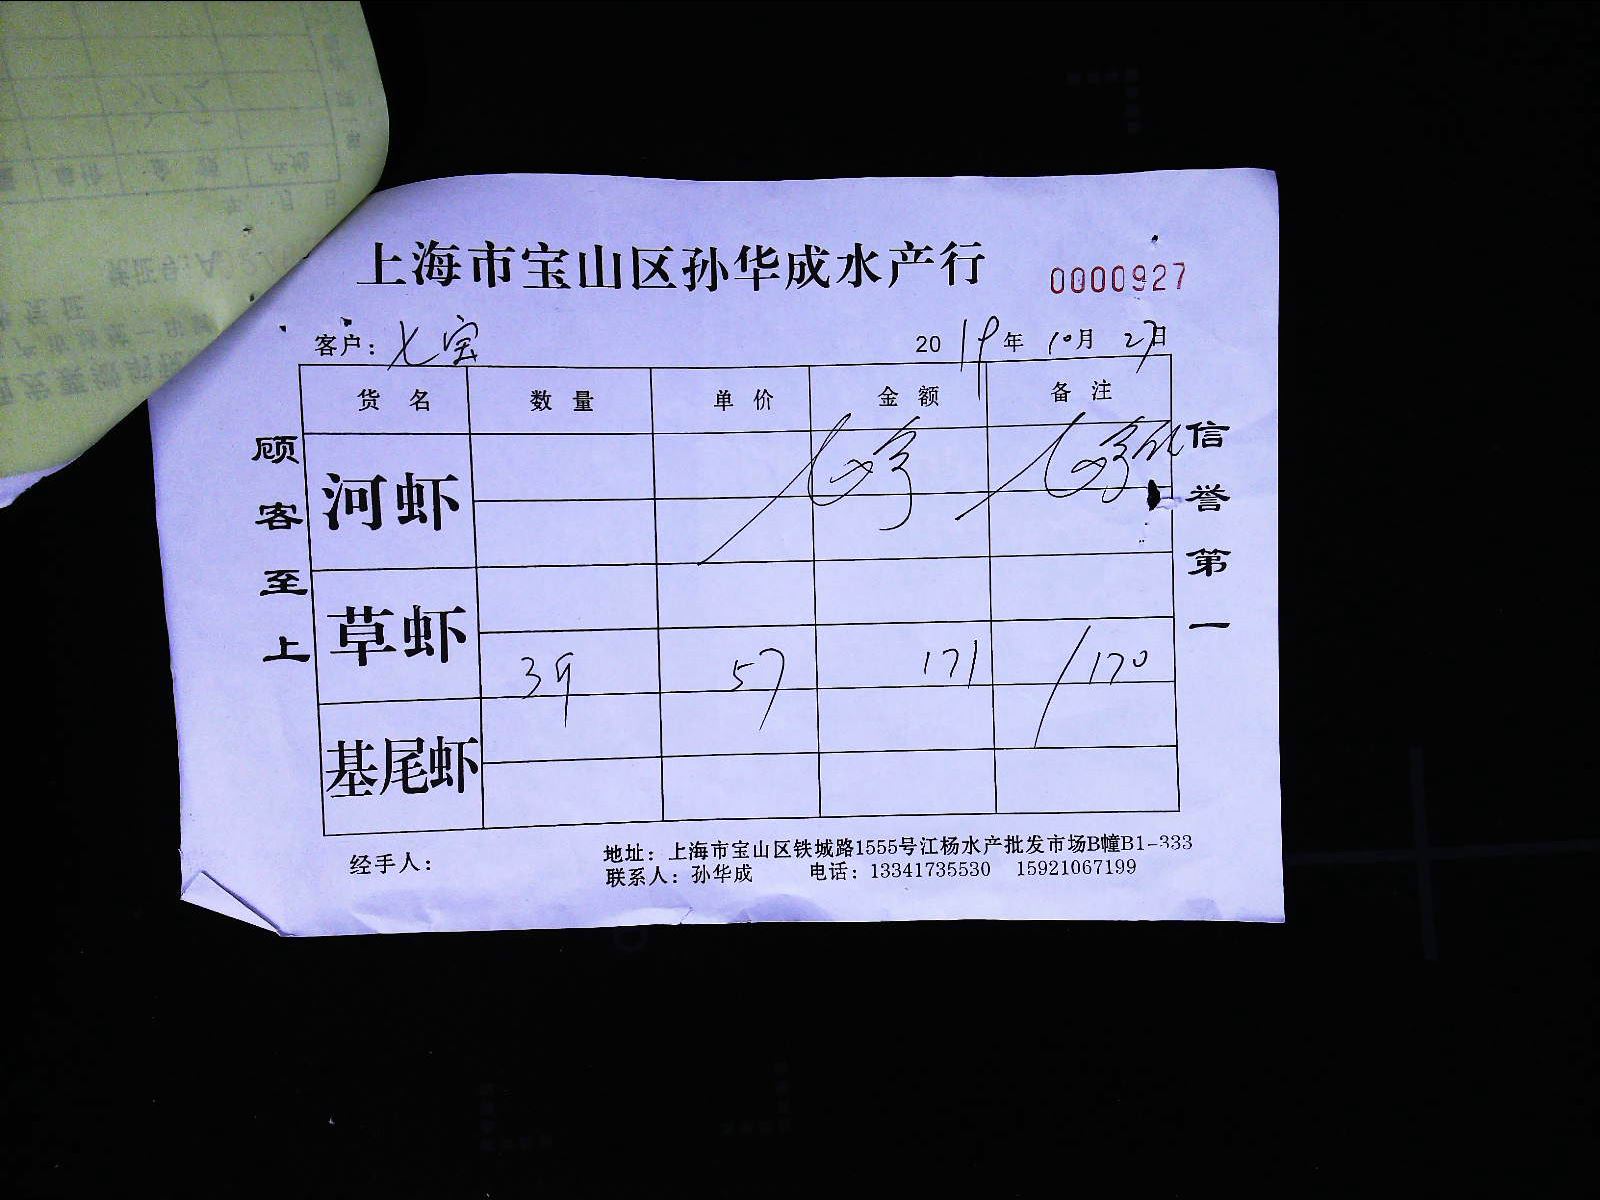 上海市宝山区孙华成水产行 0000927
客户: 七宝 2019年10月27日
货名 数量 单价 金额 备注
河虾
草虾
3斤 57 171 /170
基尾虾
顾客至上
信誉第一
经手人:
地址: 上海市宝山区铁城路1555号江杨水产批发市场B幢B1-333
联系人: 孙华成 电话: 13341735530 15921067199